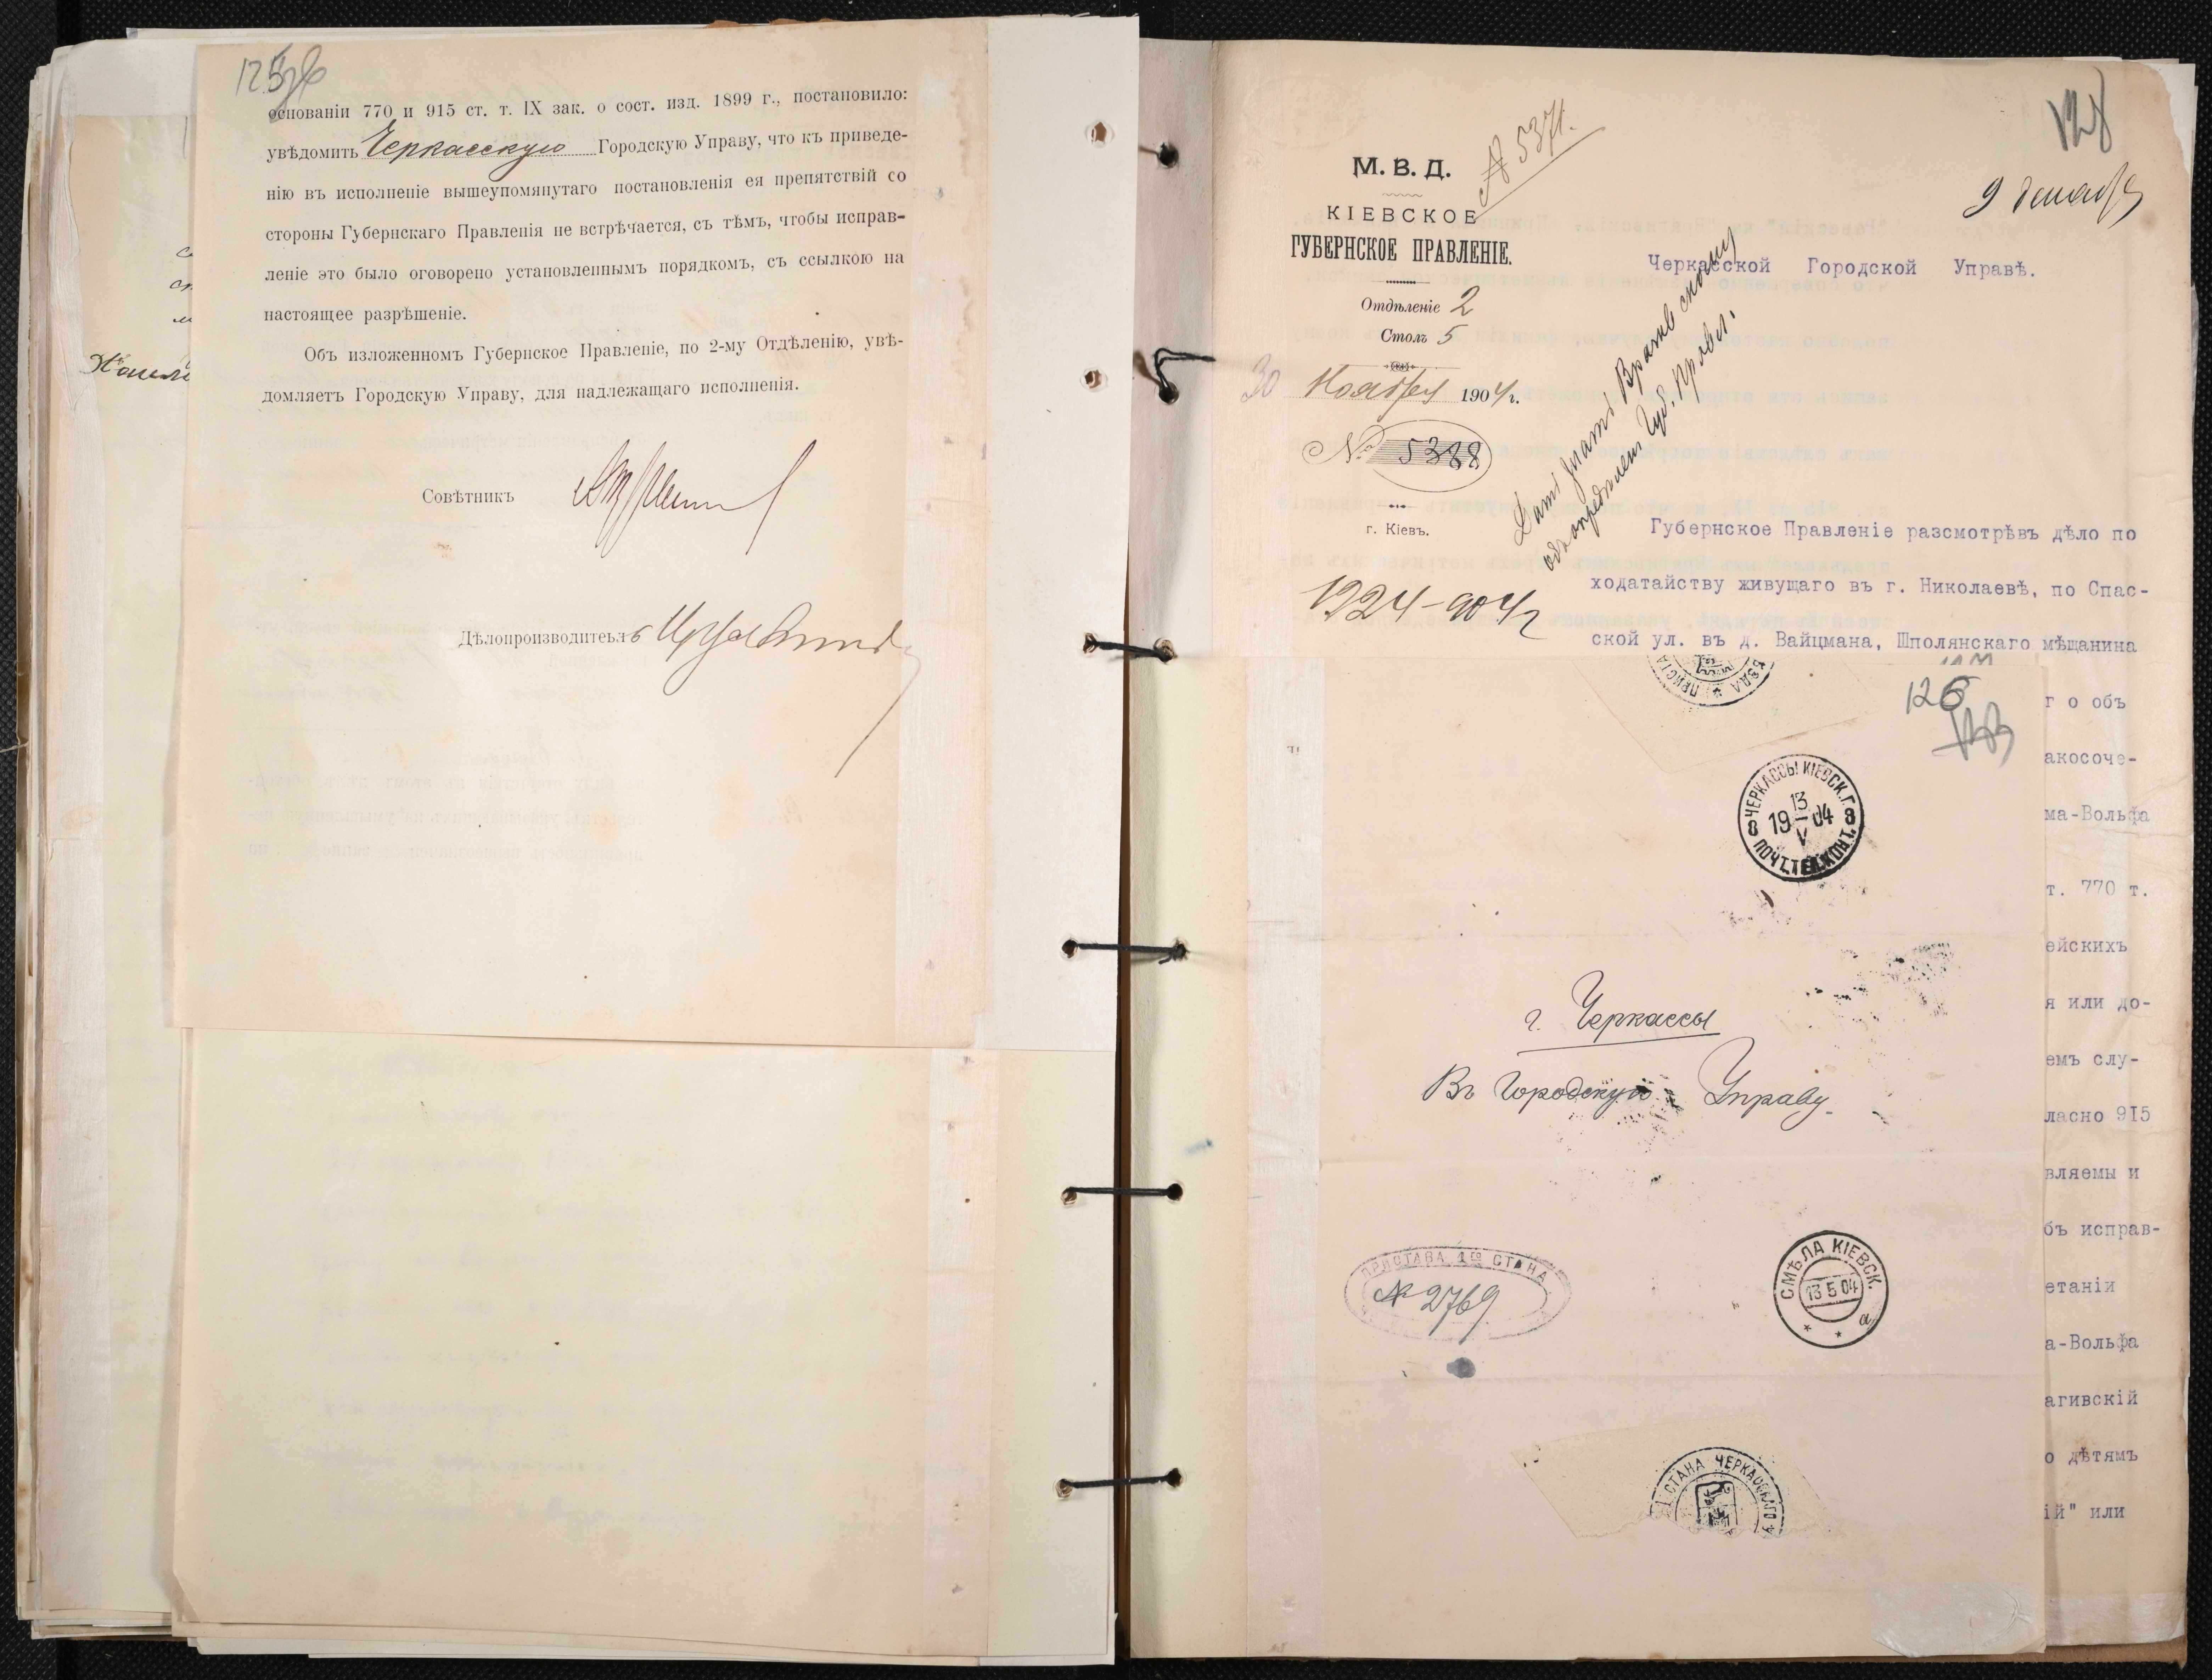 основаніи 770 и 915 ст. т. IX зак. о сост. изд. 1899 г., постановило:
увѣдомить Черкасскую Городскую Управу, что къ приведе-
нію въ исполненіе вышеупомянутаго постановленія ея препятствій со
стороны Губернскаго Правленія не встрѣчается, съ тѣмъ, чтобы исправ-
леніе это было оговорено установленнымъ порядкомъ, съ ссылкою на
настоящее разрѣшеніе.
Объ изложенномъ Губернское Правленіе, по 2-му Отдѣленію, увѣ-
домляетъ Городскую Управу, для надлежащаго исполненія.
Совѣтникъ
Дѣлопроизводитель
128
№ 5371.
9 декабря
М. В. Д.
КІЕВСКОЕ
ГУБЕРНСКОЕ ПРАВЛЕНІЕ.
Отдѣленіе 2
Столъ 5
30 Ноября 1904 г.
№ 5388
г. Кіевъ.
1224-904 г
Черкасской Городской Управѣ.
Дать знать
Губ. Правл.
Губернское Правленіе разсмотрѣвъ дѣло по
ходатайству живущаго въ г. Николаевѣ, по Спас-
ской ул. въ д. Вайцмана, Шполянскаго мѣщанина
г о объ
акосоче-
ма-Вольфа
т. 770 т.
ейскихъ
я или до-
емъ слу-
ласно 915
вляемы и
бъ исправ-
етаніи
а-Вольфа
агивскій
о дѣтямъ
ій" или
126
ЧЕРКАССЫ КІЕВСК. Г.
13
19 04
V
ПОЧТ. ТЕЛ. КОНТ.
г. Черкассы
Въ Городскую Управу.
ПРИСТАВА 1го СТАНА
№ 2769
СМѢЛА КІЕВСК.
13 5 04
а
СТАНА ЧЕРКАССКАГО